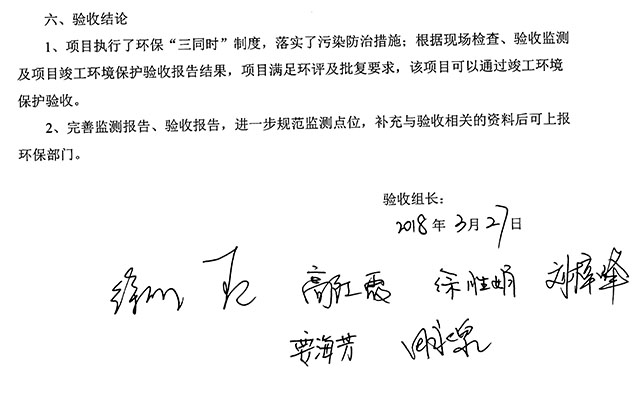 六、验收结论
1、项目执行了环保“三同时”制度，落实了污染防治措施；根据现场检查、验收监测
及项目竣工环境保护验收报告结果，项目满足环评及批复要求，该项目可以通过竣工环境
保护验收。
2、完善监测报告、验收报告，进一步规范监测点位，补充与验收相关的资料后可上报
环保部门。
验收组长：
2018年3月27日
高红霞 刘梓峰
海芳